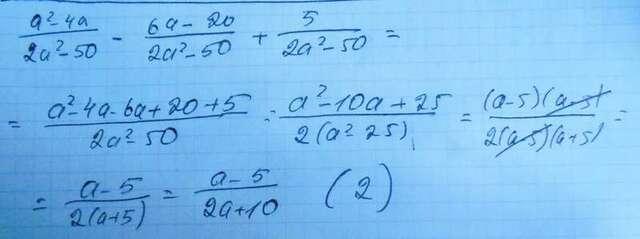 \frac{a²-4a}{2a²-50} - \frac{6a-20}{2a²-50} + \frac{5}{2a²-50} =
= \frac{a²-4a-6a+20+5}{2a²-50} = \frac{a²-10a+25}{2(a²-25)} = \frac{(a-5)(a-5)}{2(a-5)(a+5)} =
= \frac{a-5}{2(a+5)} = \frac{a-5}{2a+10} (2)